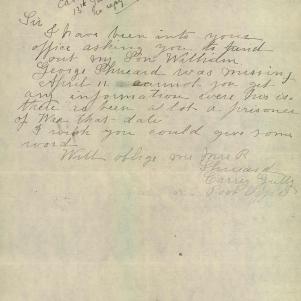 Sir
I have been into your
office asking you to find
out my Son William
George Sheard was missing
April 11 cannot you get
any information were he is
there is been a lot a prisoners
of War that date
I wish you could give some
word
Will oblige me Mrs R
Sheard
Carres Gully
Post Office